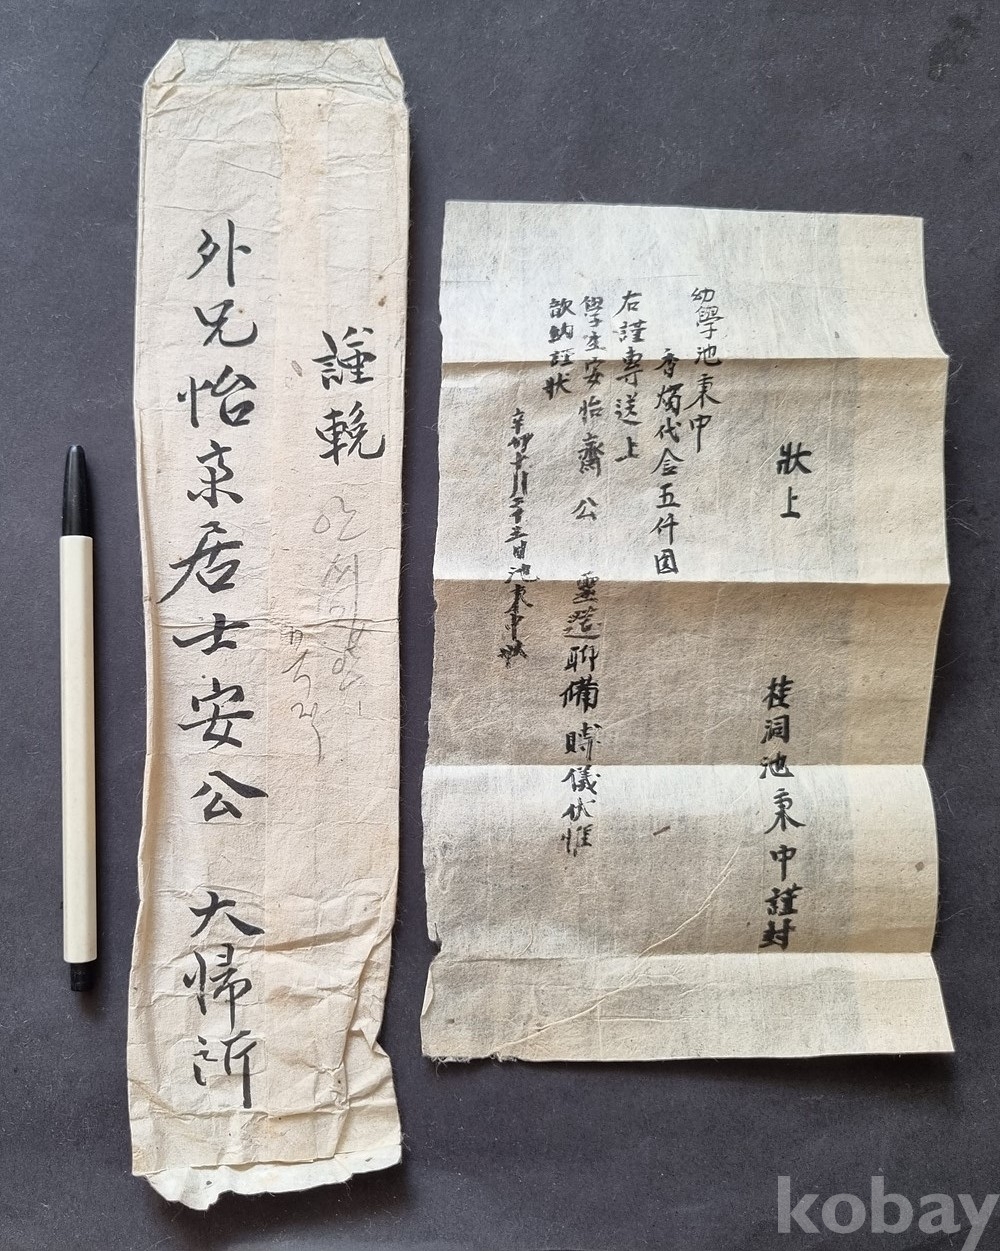 謹輓
外兄怡齋居士安公 大帰所
狀上
桂洞池秉中謹封
幼學池秉中
香燭代金五仟圓
右謹專送上
學生安怡齋公 靈筵聊備賻儀伏惟
歆納謹狀
辛卯十月二十三日池秉中狀
kobay